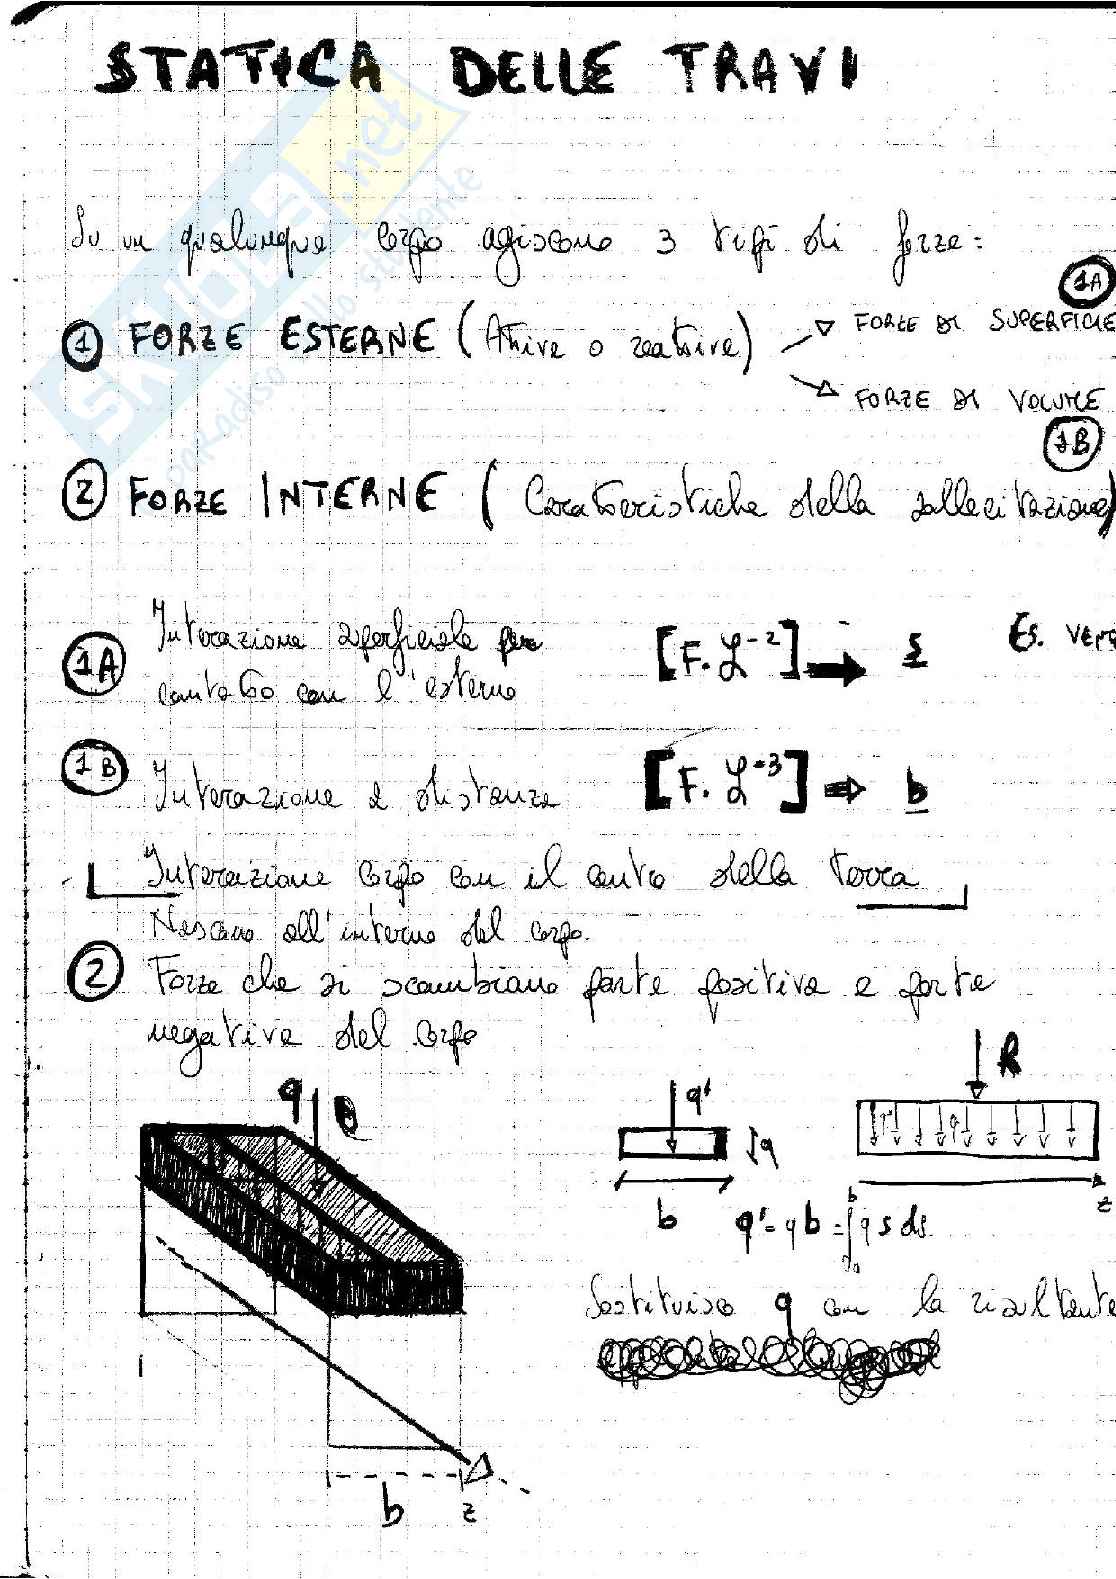 STATICA DELLE TRAVI
Su un qualunque corpo agiscono 3 tipi di forze:
1A
1 FORZE ESTERNE (Attive o reattive) FORZE DI SUPERFICIE
FORZE DI VOLUME
1B
2 FORZE INTERNE (Caratteristiche della sollecitazione)
1A Interazione superficiale per [F. L⁻²] s Es.
contatto con l'esterno
1B Interazione a distanza [F. L⁻³] b
Interazione corpo con il centro della terra
Nascono all'interno del corpo.
2 Forze che si scambiano parte positiva e parte
negativa del corpo
q
q'
R
q
b
z
q' = q b = ∫ q s ds
Sostituisco q con la risultante
b
z
SKUOLA.net
paradiso dello studente